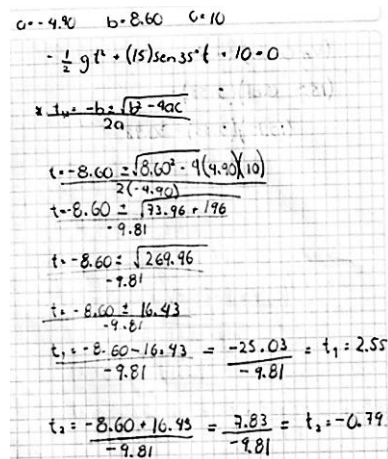 a=-4.90 b=8.60 c=10
-1/2 gt² + (15)sen35°t + 10=0
* t₁,₂ = -b±√b²-4ac / 2a
t=-8.60 ±√8.60²-4(4.90)(10) / 2(-4.90)
t=-8.60 ± √73.96+196 / -9.81
t=-8.60 ± √269.96 / -9.81
t=-8.60 ± 16.43 / -9.81
t₁=-8.60-16.43 / -9.81 = -25.03 / -9.81 = t₁=2.55
t₂=-8.60+16.43 / -9.81 = 7.83 / -9.81 = t₂=-0.79